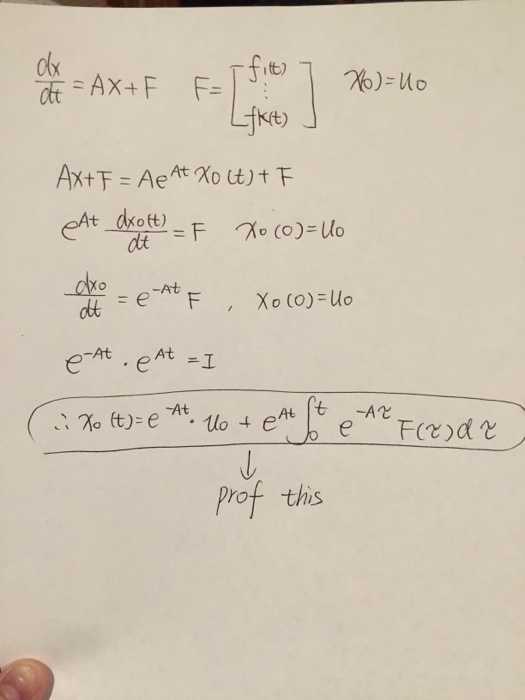 dx/dt = AX+F F= [f1(t) ⋮ fk(t)] x(0)=u0
AX+F = Ae^At x0(t) + F
e^At dx0(t)/dt = F x0(0)=u0
dx0/dt = e^-At F , x0(0)=u0
e^-At · e^At = I
∴ x0(t)= e^-At · u0 + e^At ∫0^t e^-Aτ F(τ)dτ
↓
prof this